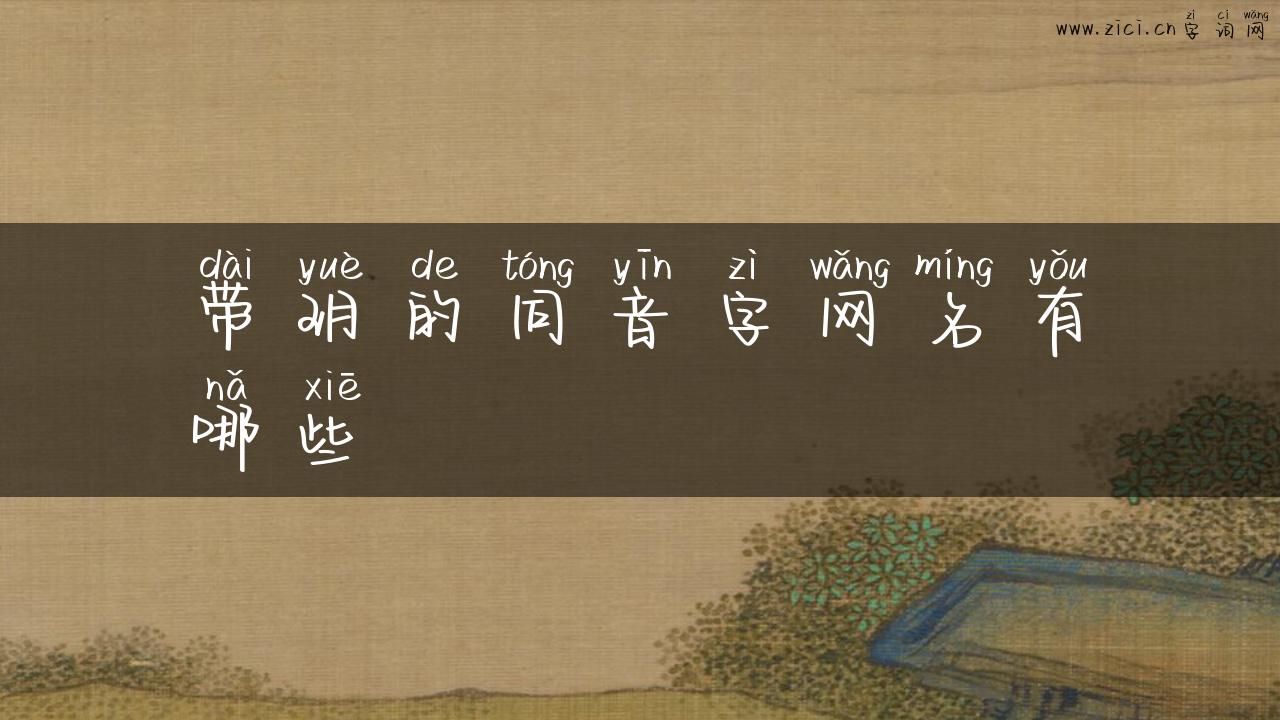 zì cí wǎng
www.zici.cn 字 词 网
dài yuè de tóng yīn zì wǎng míng yǒu
带 玥 的 同 音 字 网 名 有
nǎ xiē
哪 些